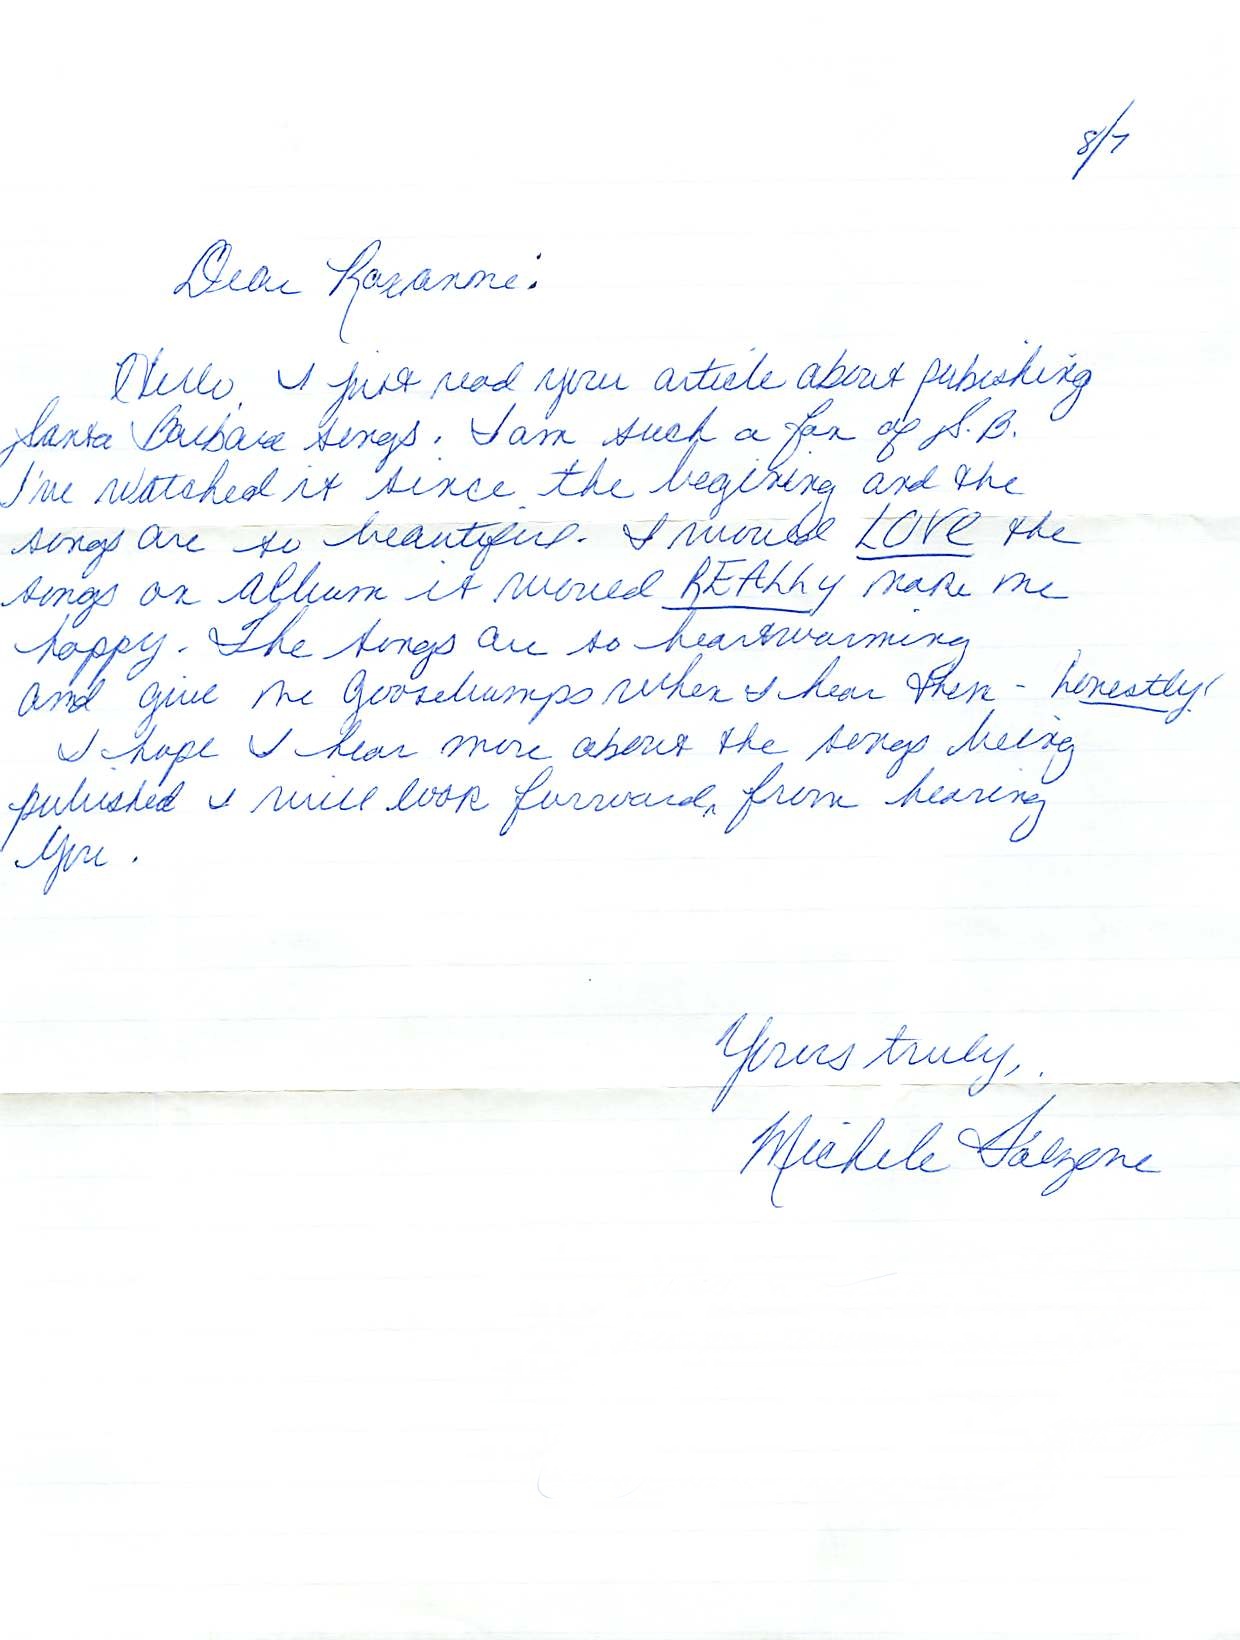 8/7
Dear Roxanne:
Hello, I just read your article about pubishing
Santa Barbara songs. I am such a fan of S.B.
I've watched it since the begining and the
songs are so beautiful. I would LOVE the
songs on album it would REALLY make me
happy. The songs are so heartwarming
and give me goosebumps when I hear them - honestly!
I hope I hear more about the songs being
pubished I will look forward, from hearing
you.
Yours truly,
Michele Salzone